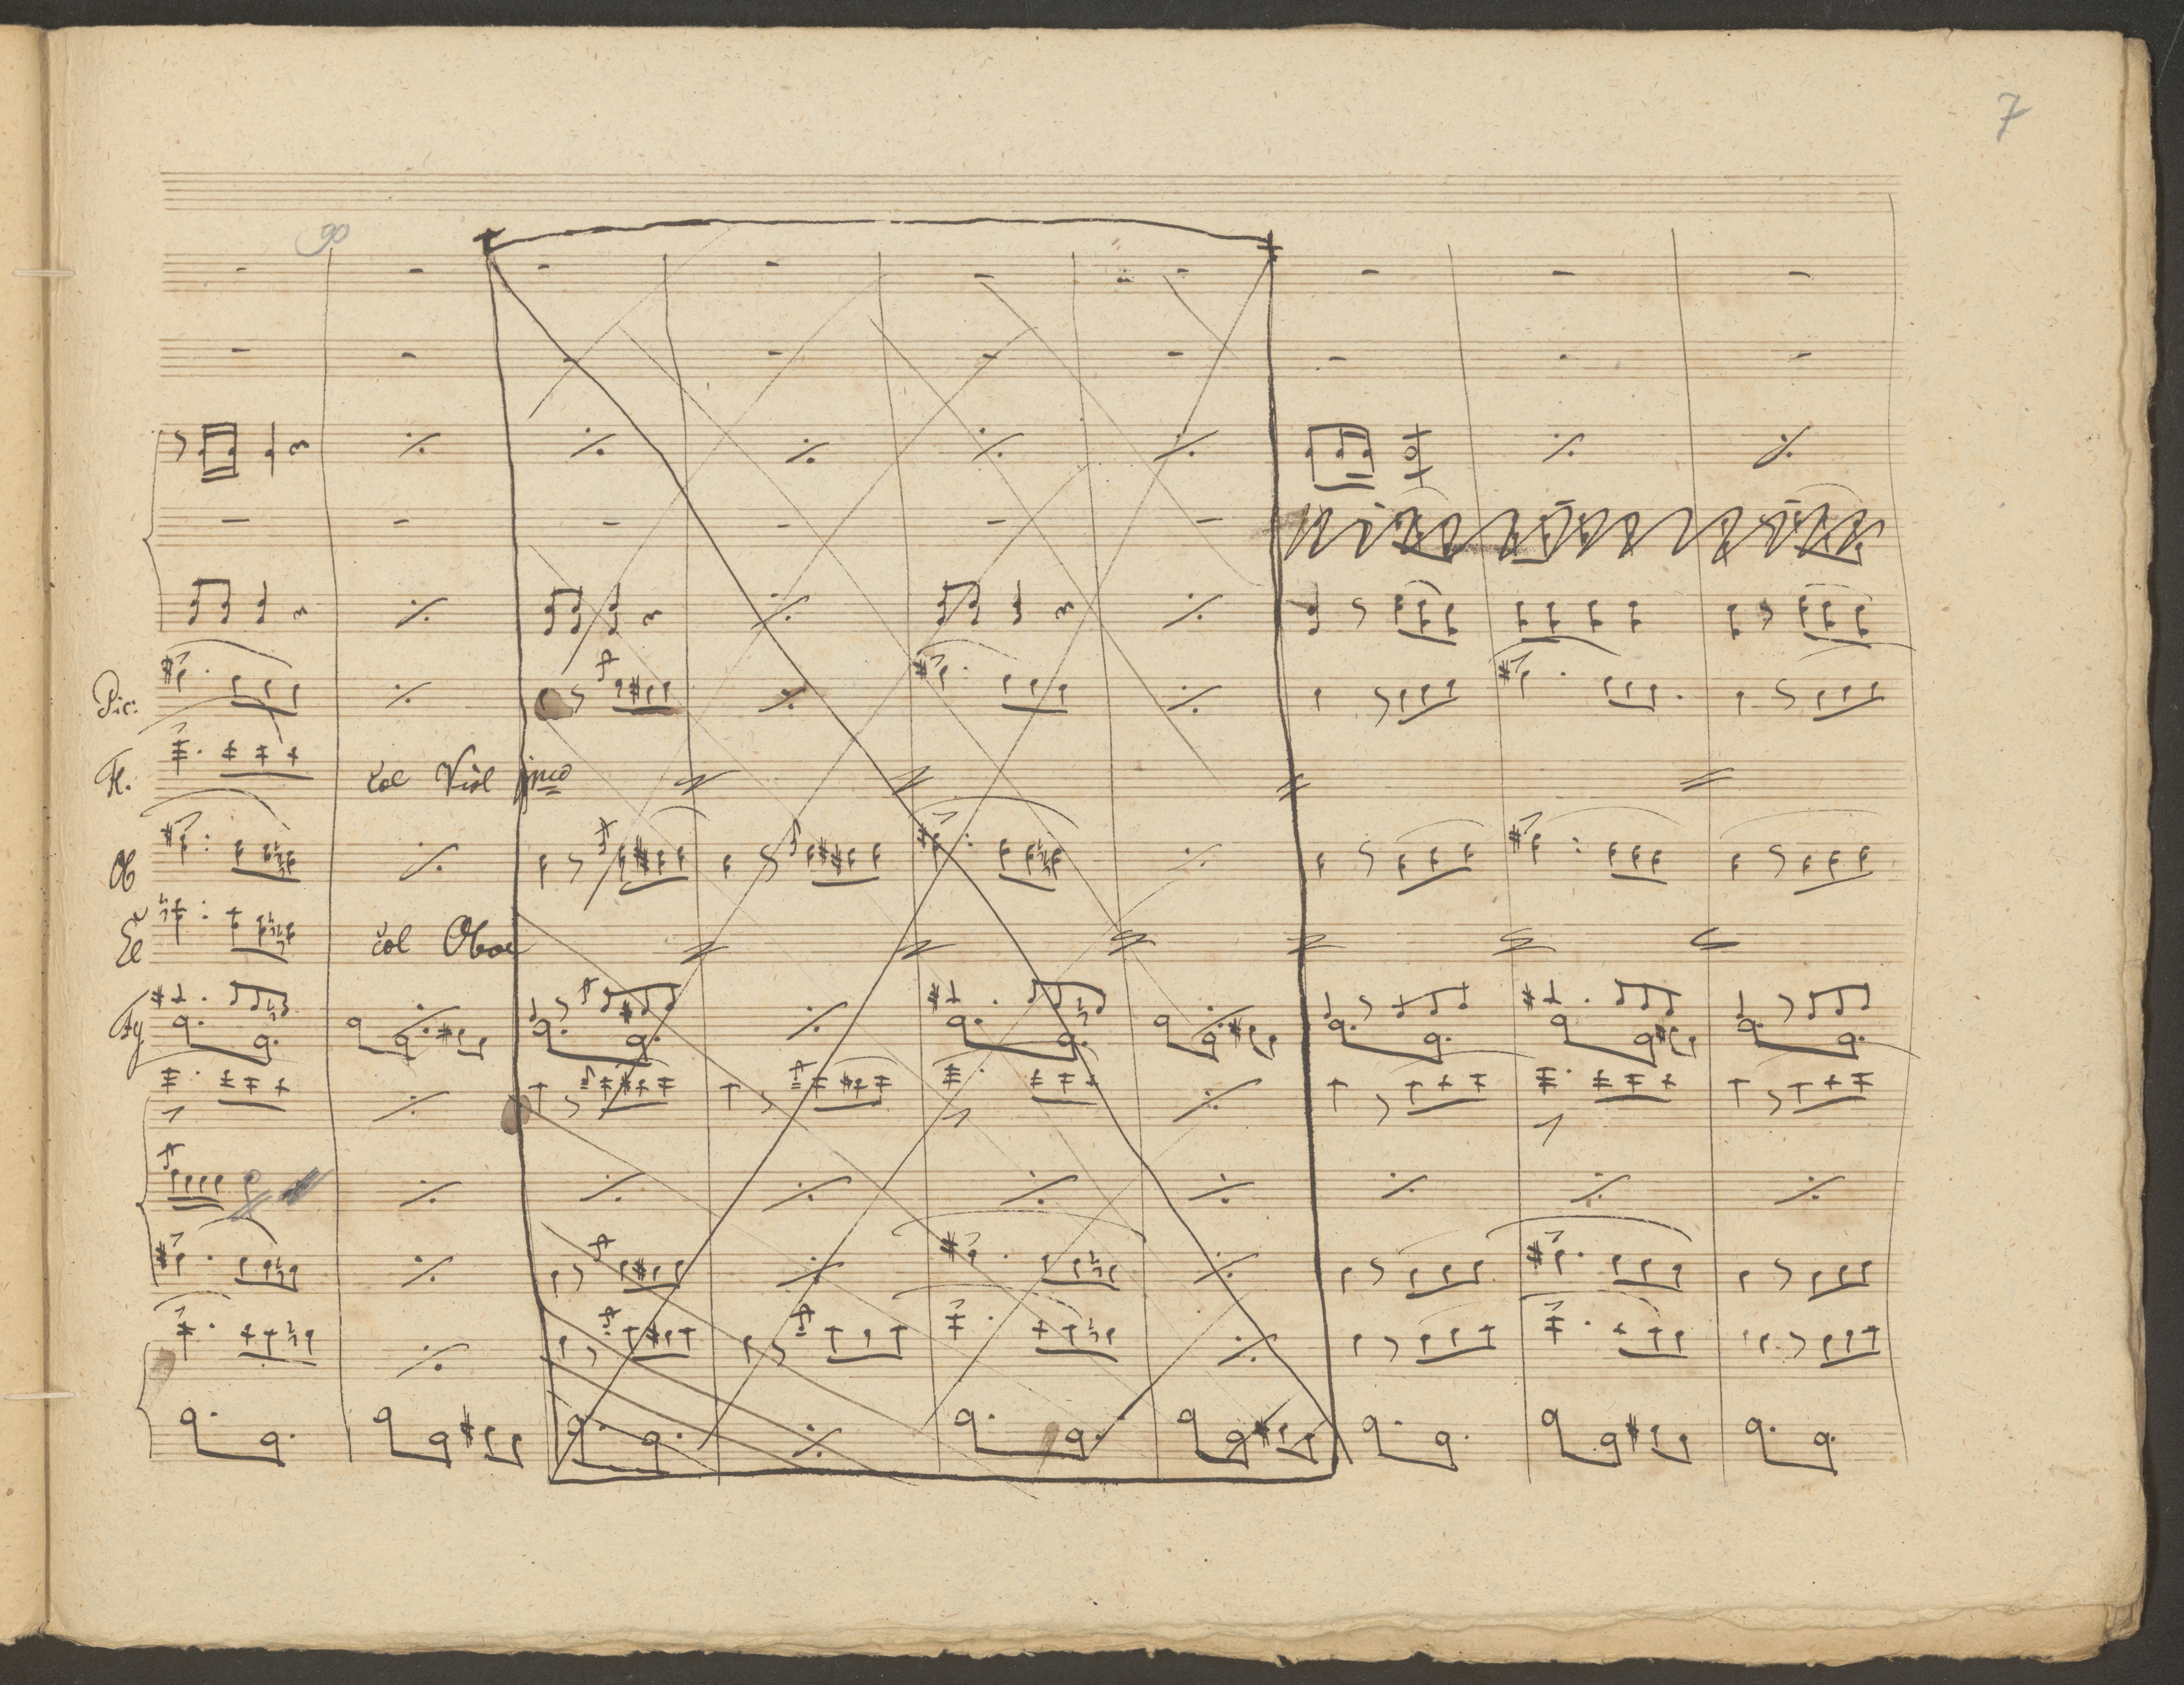 7
90
Pic:
Fl. col Viol pmo
Ob
Cl col Oboe
Fg